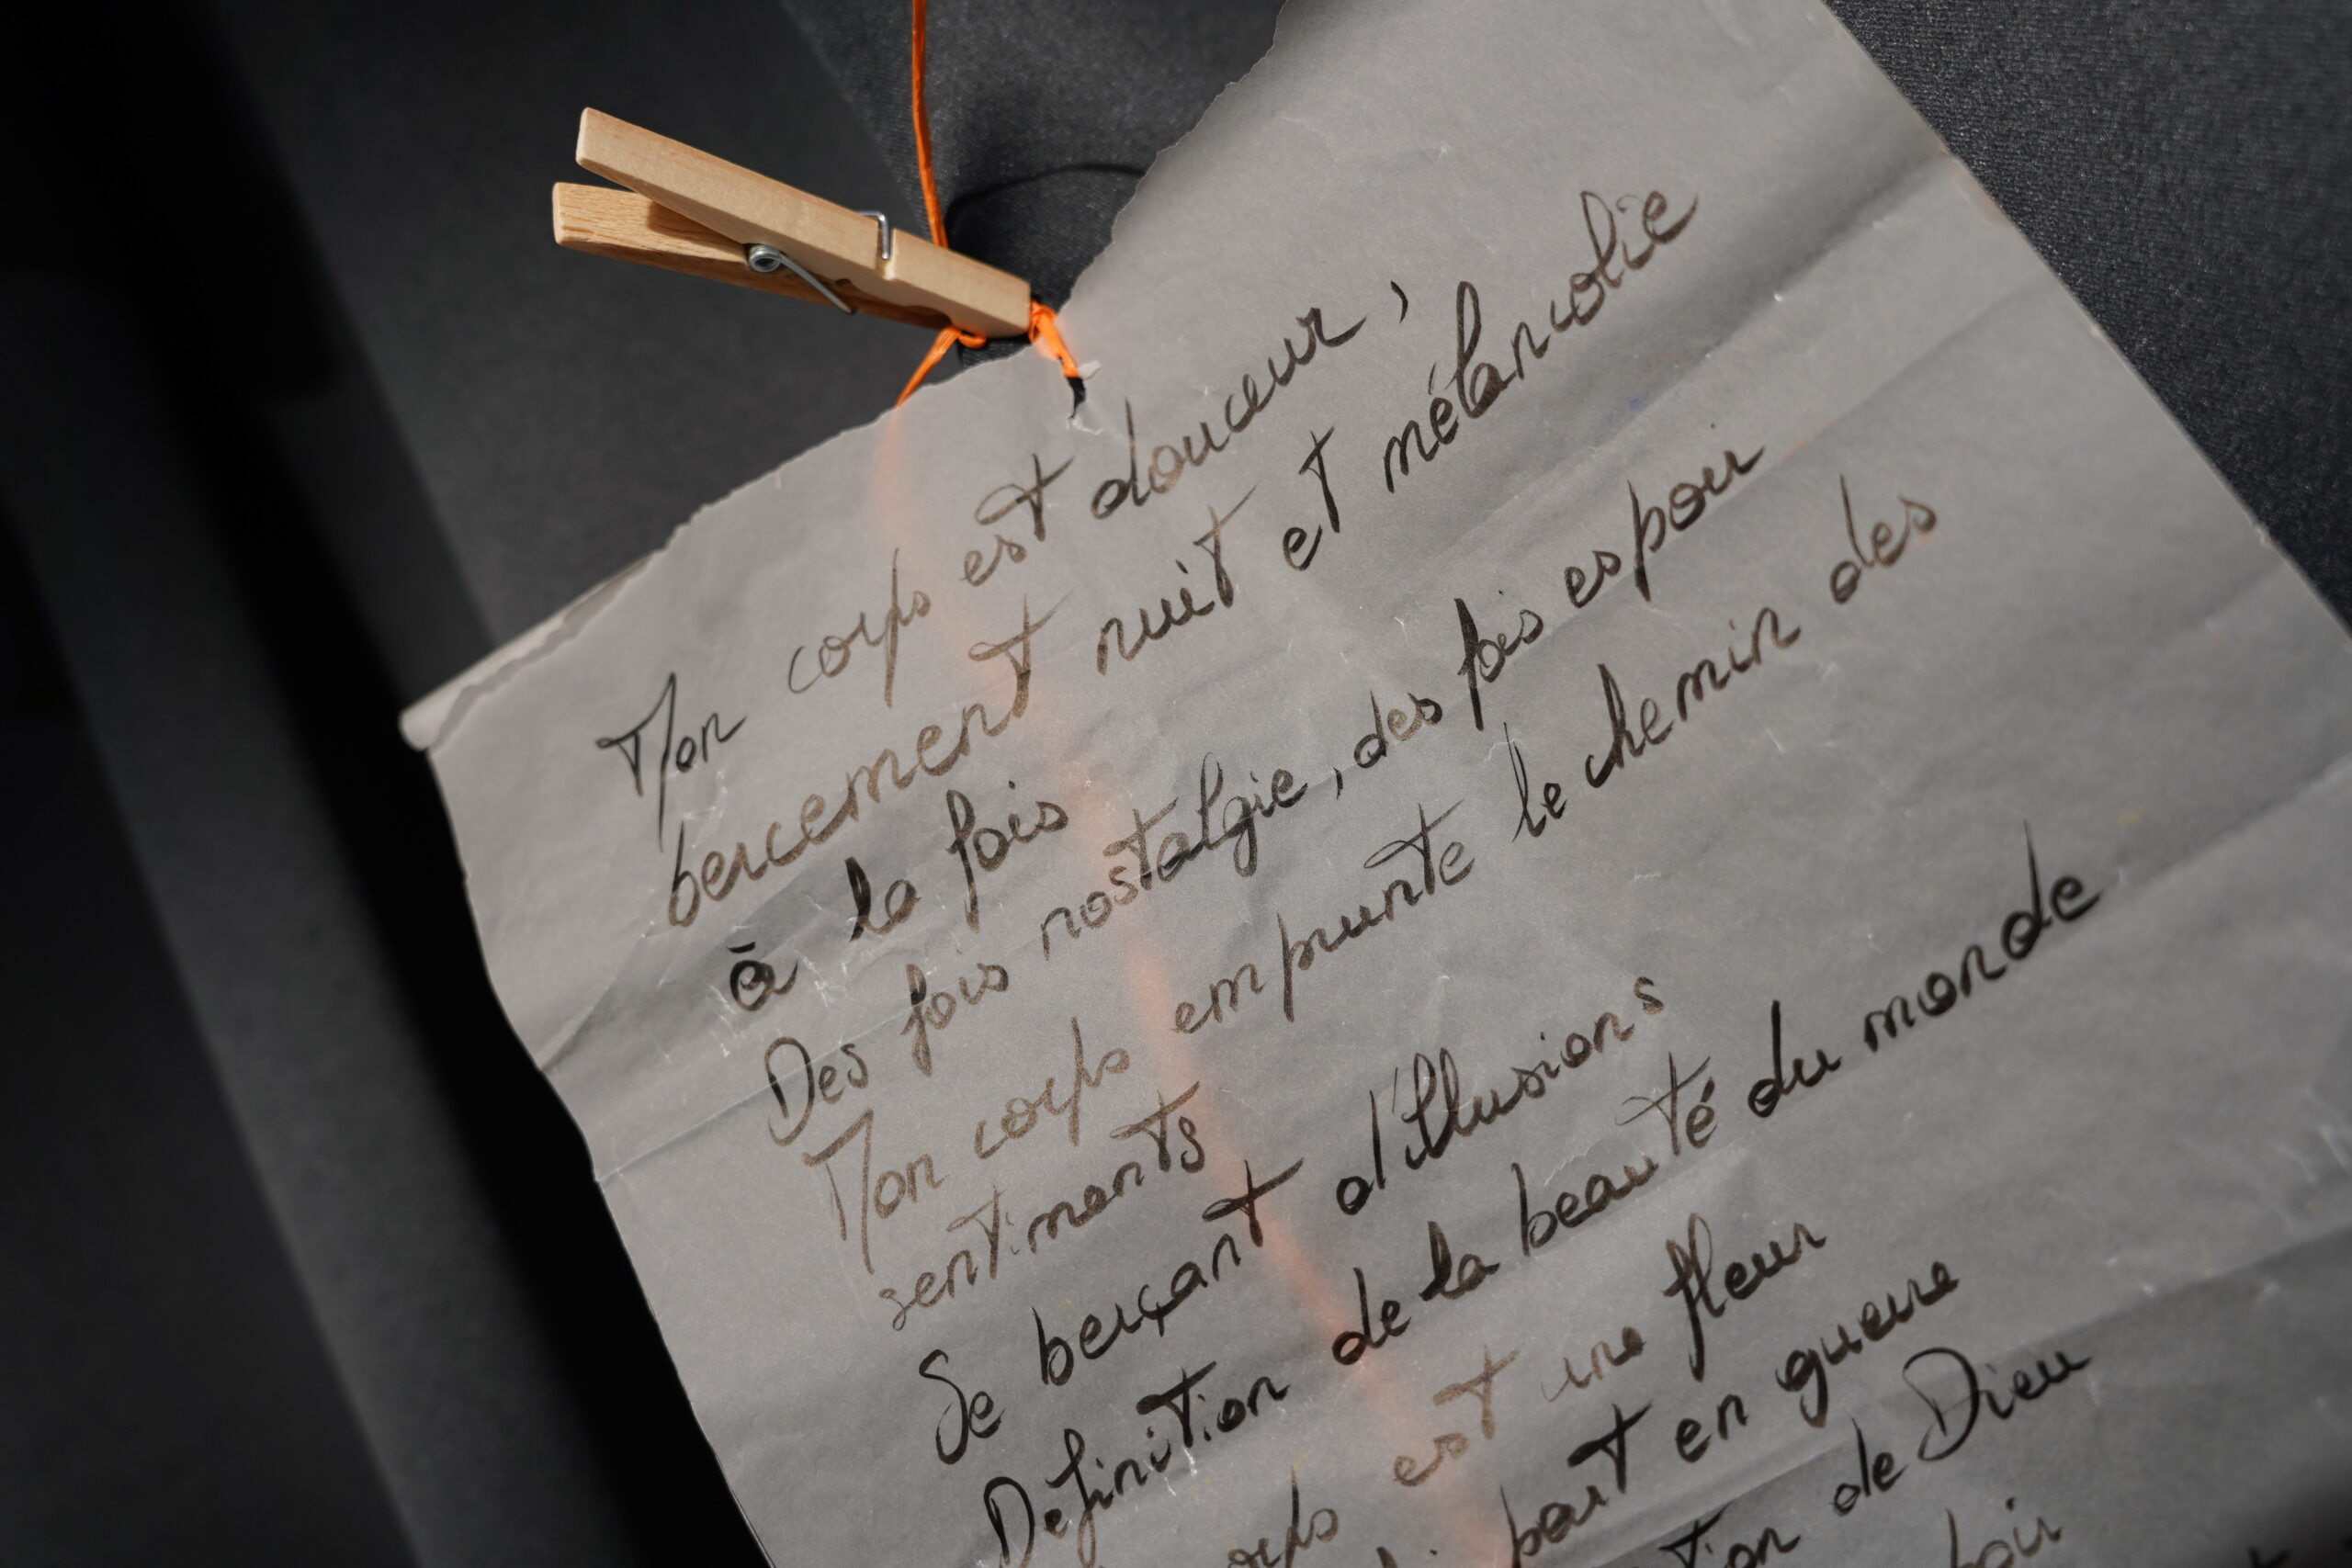 Mon corps est douceur,
bercement nuit et mélancolie
à la fois
Des fois nostalgie, des fois espoir
Mon corps emprunte le chemin des
sentiments
Se berçant d'illusions
Définition de la beauté du monde
corps est une fleur
part en guerre
de Dieu